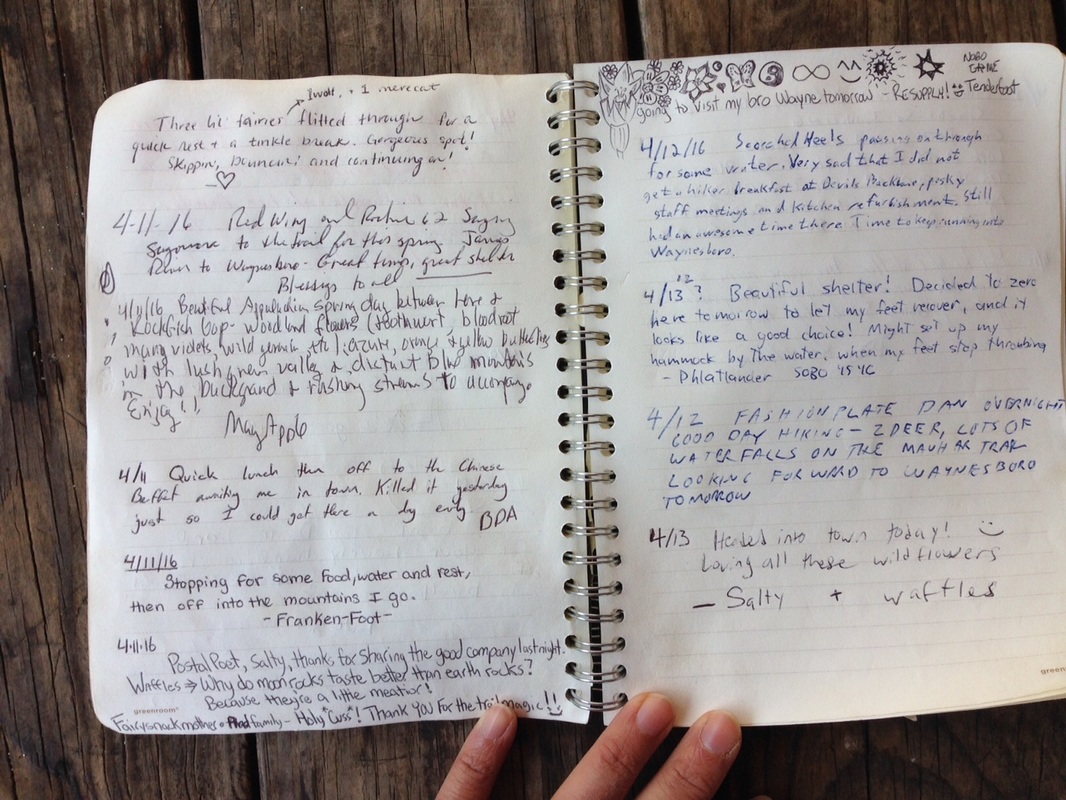 1 merecat
Three lil fairies flitted through for a
quick rest + a tinkle break. Gorgeous spot!
Skippin, bouncin, and continuing on!
4-11-16 Red Wing and
to the trail for this spring
to Waynesboro - Great time, great shelter
Blessings to all
4/11/16 Beautiful Appalachian spring day between here &
Rockfish Gap - woodland flowers (toothwort, bloodroot
many violets, wild geranium, etc), azure, orange & yellow butterflies
with lush green valleys & distant blue mountains
in the background & rushing streams to accompany
Enjoy!!
MayApple
4/11 Quick lunch then off to the Chinese
Buffet awaiting me in town. Killed it yesterday
just so I could get there a day early.
BDA
4/11/16
Stopping for some food, water and rest,
then off into the mountains I go.
-Franken-Foot-
4.11.16
Postal Poet, Salty, thanks for sharing the good company last night.
Waffles ⇒ Why do moon rocks taste better than earth rocks?
Because they're a little meatior!
greenroom
Fairysnackmother + family - Holy "Cuss"! Thank You for the trail magic!!
NOBO
going to visit my bro Wayne tomorrow - RESUPPLY! Tenderfoot
4/12/16 Scorched Heels passing on through
for some water. Very sad that I did not
get a hiker breakfast at Devils Backbone, pesky
staff meetings and kitchen refurbishment. Still
had an awesome time there. Time to keep running into
Waynesboro.
12
4/13? Beautiful shelter! Decided to zero
here tomorrow to let my feet recover, and it
looks like a good choice! Might set up my
hammock by the water, when my feet stop throbbing
- Phlatlander SOBO '15 '16
4/12 FASHION PLATE DAN OVERNIGHT
GOOD DAY HIKING - 2 DEER, LOTS OF
WATERFALLS ON THE MAUHAR TRAIL
LOOKING FORWARD TO WAYNESBORO
TOMORROW
4/13 Headed into town today!
Loving all these wildflowers
- Salty + waffles
green